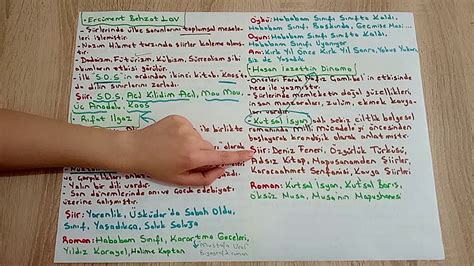 Ercüment Behzat Lav
- Şiirlerinde ülke sorunlarını toplumsal mesele
leri işlemiştir.
- Nazım Hikmet tarzında şiirler kaleme almış
tır.
- Dadaizm, Fütürizm, Kübizm, Sürrealizm gibi
akımların etkisi görülür.
- İlk S.O.S'in ardından ikinci kitabı Kaos'ta
da dilin sınırlarını zorladı.
Şiir: S.O.S, Açıl Kilidim Açıl, Mau Mau,
Üç Anadolu, Kaos
- Rıfat Ilgaz
birlikte
olarak
- Yalın bir dili vardır.
- Son dönemlerinde anı ve çocuk edebiyatı
üzerine çalışmıştır.
Şiir: Yarenlik, Üsküdar'da Sabah Oldu,
Sınıf, Yaşadıkça, Soluk Soluğa
Roman: Hababam Sınıfı, Karartma Geceleri,
Yıldız Karayel, Halime Kaptan
Öykü: Hababam Sınıfı Sınıfta Kaldı,
Hababam Sınıfı Baskında, Geçmişe
Oyun: Hababam Sınıfı Sınıfta Kaldı,
Hababam Sınıfı Uyanıyor
Anı: Kırk Yıl Önce Kırk Yıl Sonra, Yokuş Yukarı,
Biz de Yaşadık
- Hasan İzzettin Dinamo
Önceleri Faruk Nafiz Çamlıbel'in etkisinde
hece ile yazmıştır.
- Şiirlerinde memleketin doğal güzellikleri,
insan manzaraları, zulüm, ekmek kavga
vardır.
- Kutsal İsyan adlı sekiz ciltlik belgesel
romanında Milli Mücadele'yi öncesinden
başlayarak kronolojik olarak anlatmıştır.
Şiir: Deniz Feneri, Özgürlük Türküsü,
Adsız Kitap, Mapusanemden Şiirler,
Karacaahmet Senfonisi, Kavga Şiirleri
Roman: Kutsal İsyan, Kutsal Barış,
Öksüz Musa, Musa'nın Mapushanesi